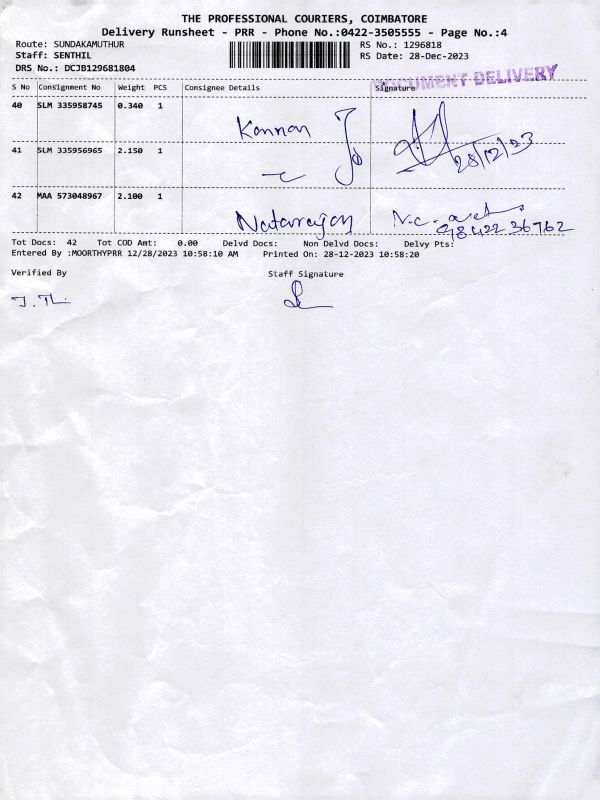 THE PROFESSIONAL COURIERS, COIMBATORE
Delivery Runsheet - PRR - Phone No.:0422-3505555 - Page No.:4
Route: SUNDAKAMUTHUR
RS No.: 1296818
Staff: SENTHIL
RS Date: 28-Dec-2023
DRS No.: DCJB129681804
DOCUMENT DELIVERY
S No Consignment No Weight PCS Consignee Details Signature
40 SLM 335958745 0.340 1 Kannan
41 SLM 335956965 2.150 1 28/12/23
42 MAA 573048967 2.100 1 Natarajan
9842236762
Tot Docs: 42 Tot COD Amt: 0.00 Delvd Docs: Non Delvd Docs: Delvy Pts:
Entered By :MOORTHYPRR 12/28/2023 10:58:10 AM Printed On: 28-12-2023 10:58:20
Verified By Staff Signature